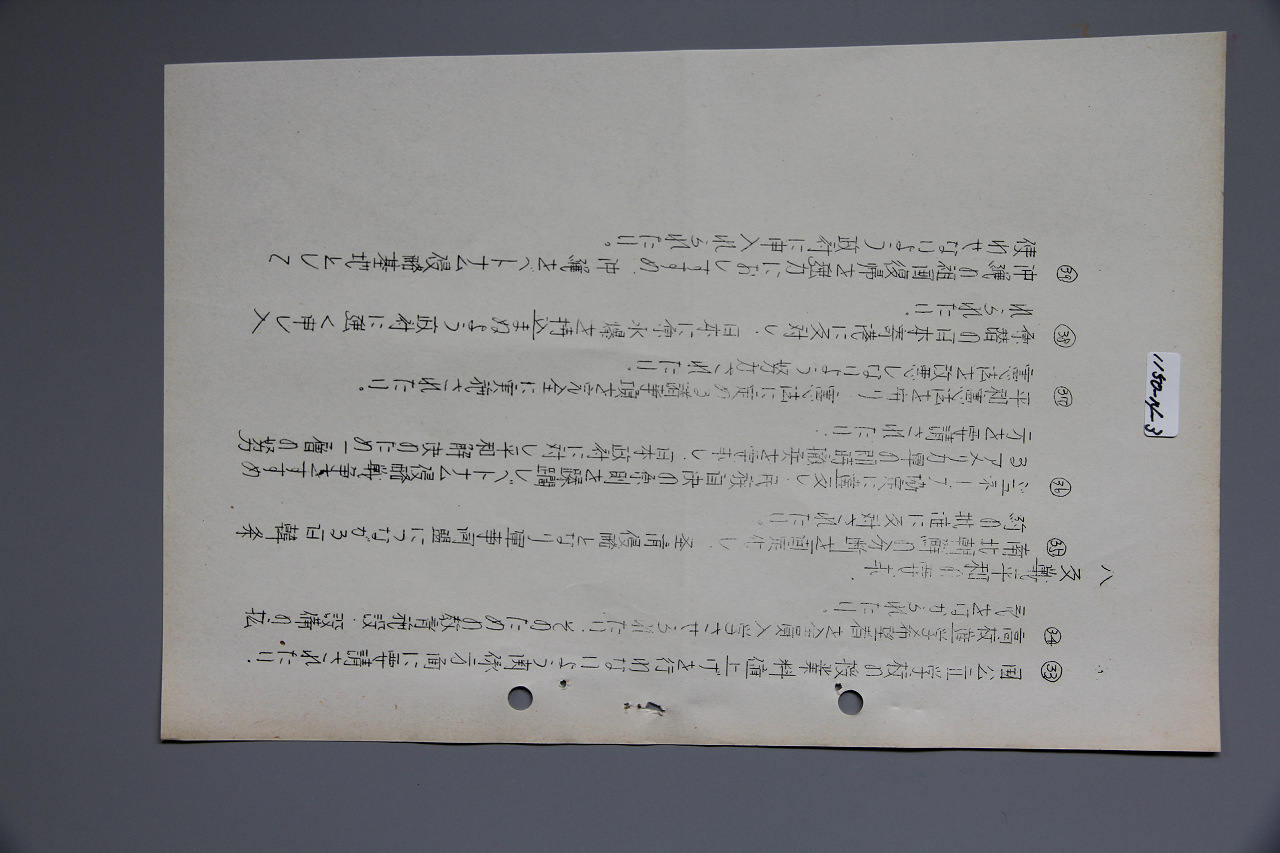 ㉝ 国公立学校の授業料値上げを行わないよう関係方面に要請されたい。
㉞ 高校進学希望者を全員入学させられたい。そのための教育施設、設備の拡
充をはかられたい。
八 反戦平和の要求
㉟ 南北朝鮮の分断を固定化し、
侵略となり軍事同盟につながる日韓条
約の批准に反対されたい。
㊱ ジュネーブ協定に違反し、民族自決の原則を蹂躙しベトナム侵略戦争をすすめ
るアメリカ軍の即時撤兵を要求し、日本政府に対し平和解決のため一層の努
力を要請されたい。
㊲ 平和憲法を守り、憲法に定める諸事項を完全に実施されたい。
憲法を改悪しないよう努力されたい。
㊳ 原潜の日本寄港に反対し、日本に原水爆を持込まぬよう政府に強く申し入
れられたい
㊴ 沖縄の祖国復帰を強力におしすすめ、沖縄をベトナム侵略基地として
使わせないよう政府に申入れられたい。